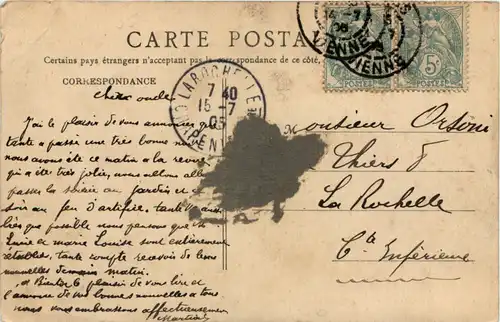 CARTE POSTALE
Certains pays étrangers n'acceptent pas la correspondance de ce côté,
CORRESPONDANCE
Cher oncle
J'ai le plaisir de vous annoncer que
tante a passé une très bonne nuit
nous avons été ce matin a la revue
qui a été très jolie, nous allons
passer la soirée au jardin
soir au feu d'artifice. tante
possible nous pensons que
Lucie et marie Louise sont entièrement
rétablies, tante compte recevoir de leurs
nouvelles demain matin.
a Bientôt le plaisir de vous lire et
de bonnes nouvelles a tous
nous vous embrassons affectueusement
LAROCHE
7 40
15 -7
05
VIENNE
VIENNE
5c
POSTES
Monsieur Orsoni
Thiers 8
La Rochelle
Cte Inférieure